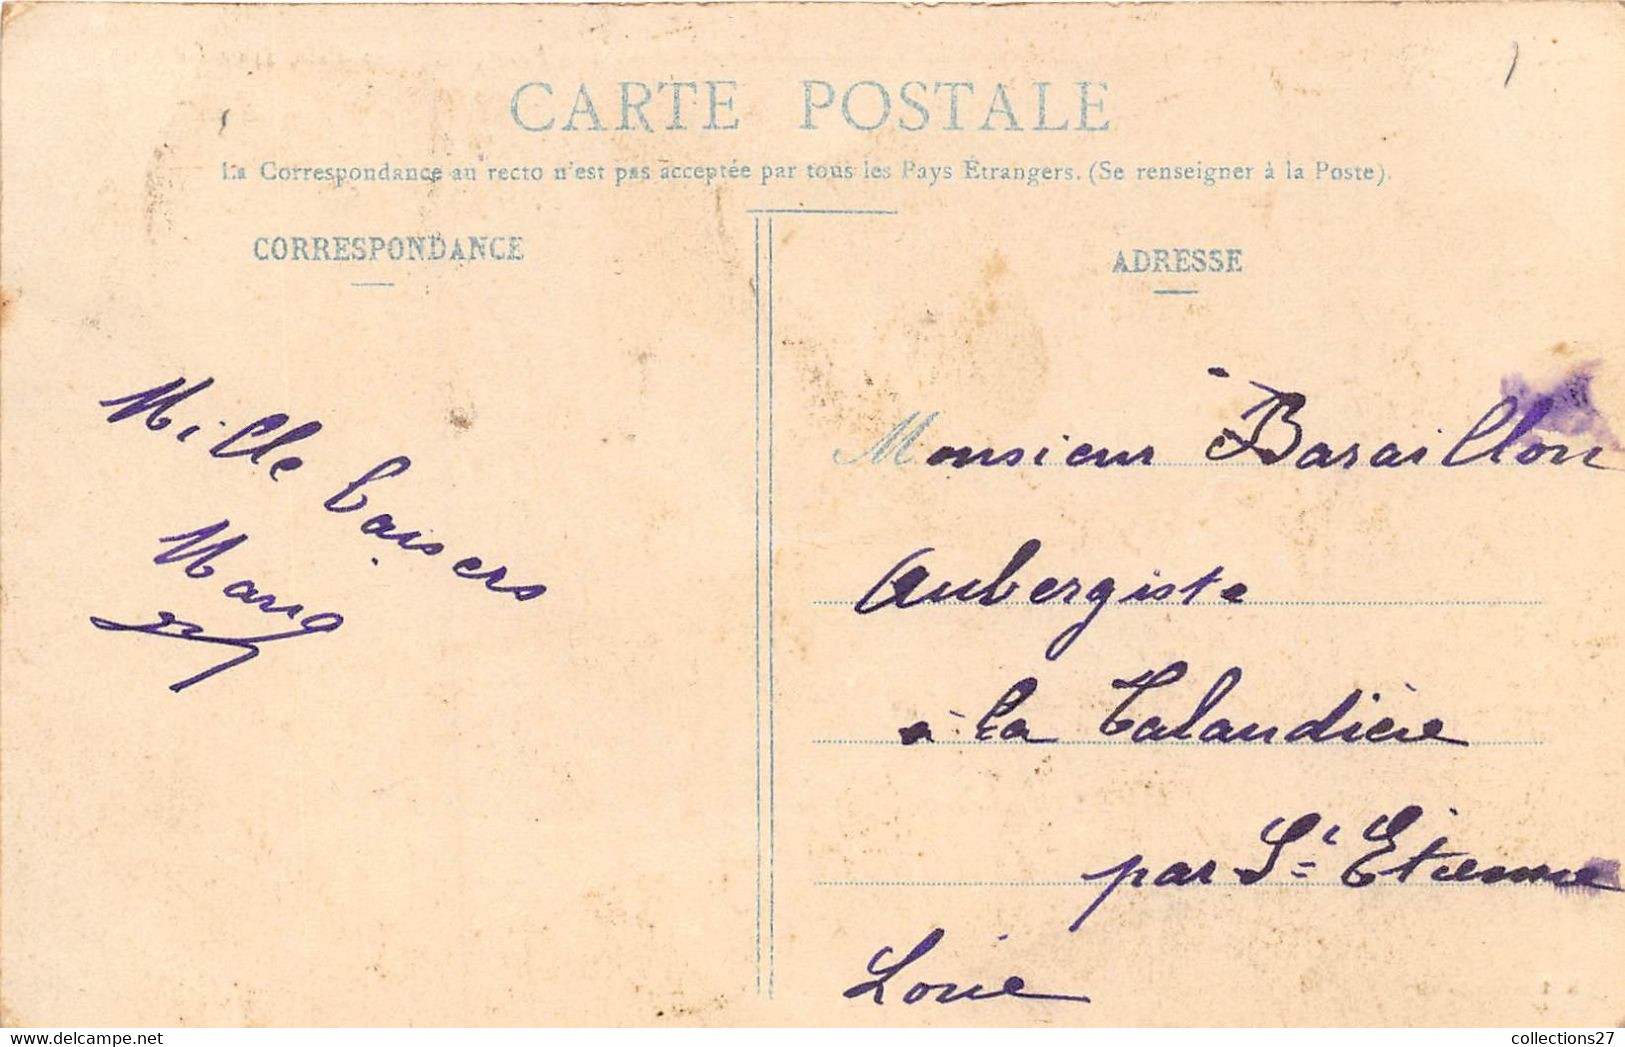 CARTE POSTALE
La Correspondance au recto n'est pas acceptée par tous les Pays Étrangers. (Se renseigner à la Poste).
CORRESPONDANCE
Mille baisers
ADRESSE
Monsieur Baraillon
Aubergiste
à la Talandière
par St Etienne
Loire
collections27